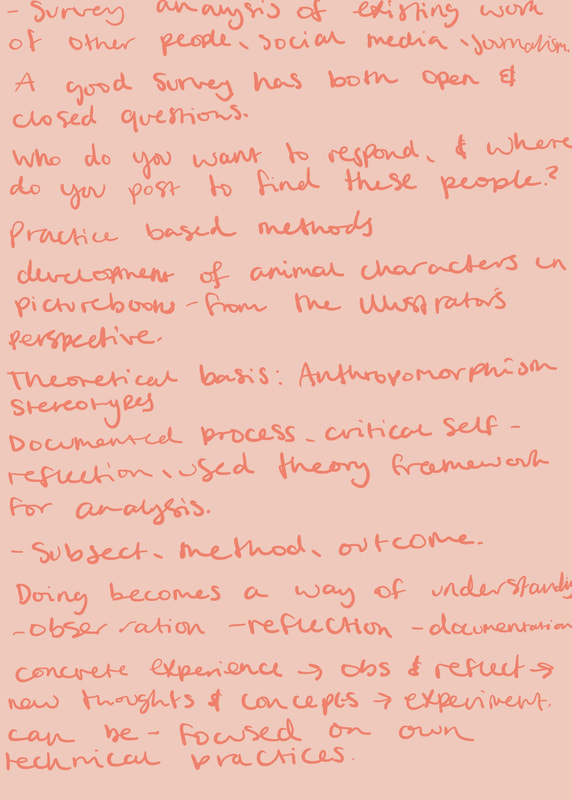 - Survey analysis of existing work
of other people, social media, journalism.
A good survey has both open &
closed questions.
who do you want to respond, & where
do you post to find these people?
Practice based methods
development of animal characters in
picturebooks - from the illustrator's
perspective.
Theoretical basis: Anthropomorphism
stereotypes
Documented process, critical self -
reflection, used theory framework
for analysis.
- Subject, method, outcome.
Doing becomes a way of understanding
- observation - reflection - documentation
concrete experience → obs & reflect →
new thoughts & concepts → experiment.
can be - focused on own
technical practices.